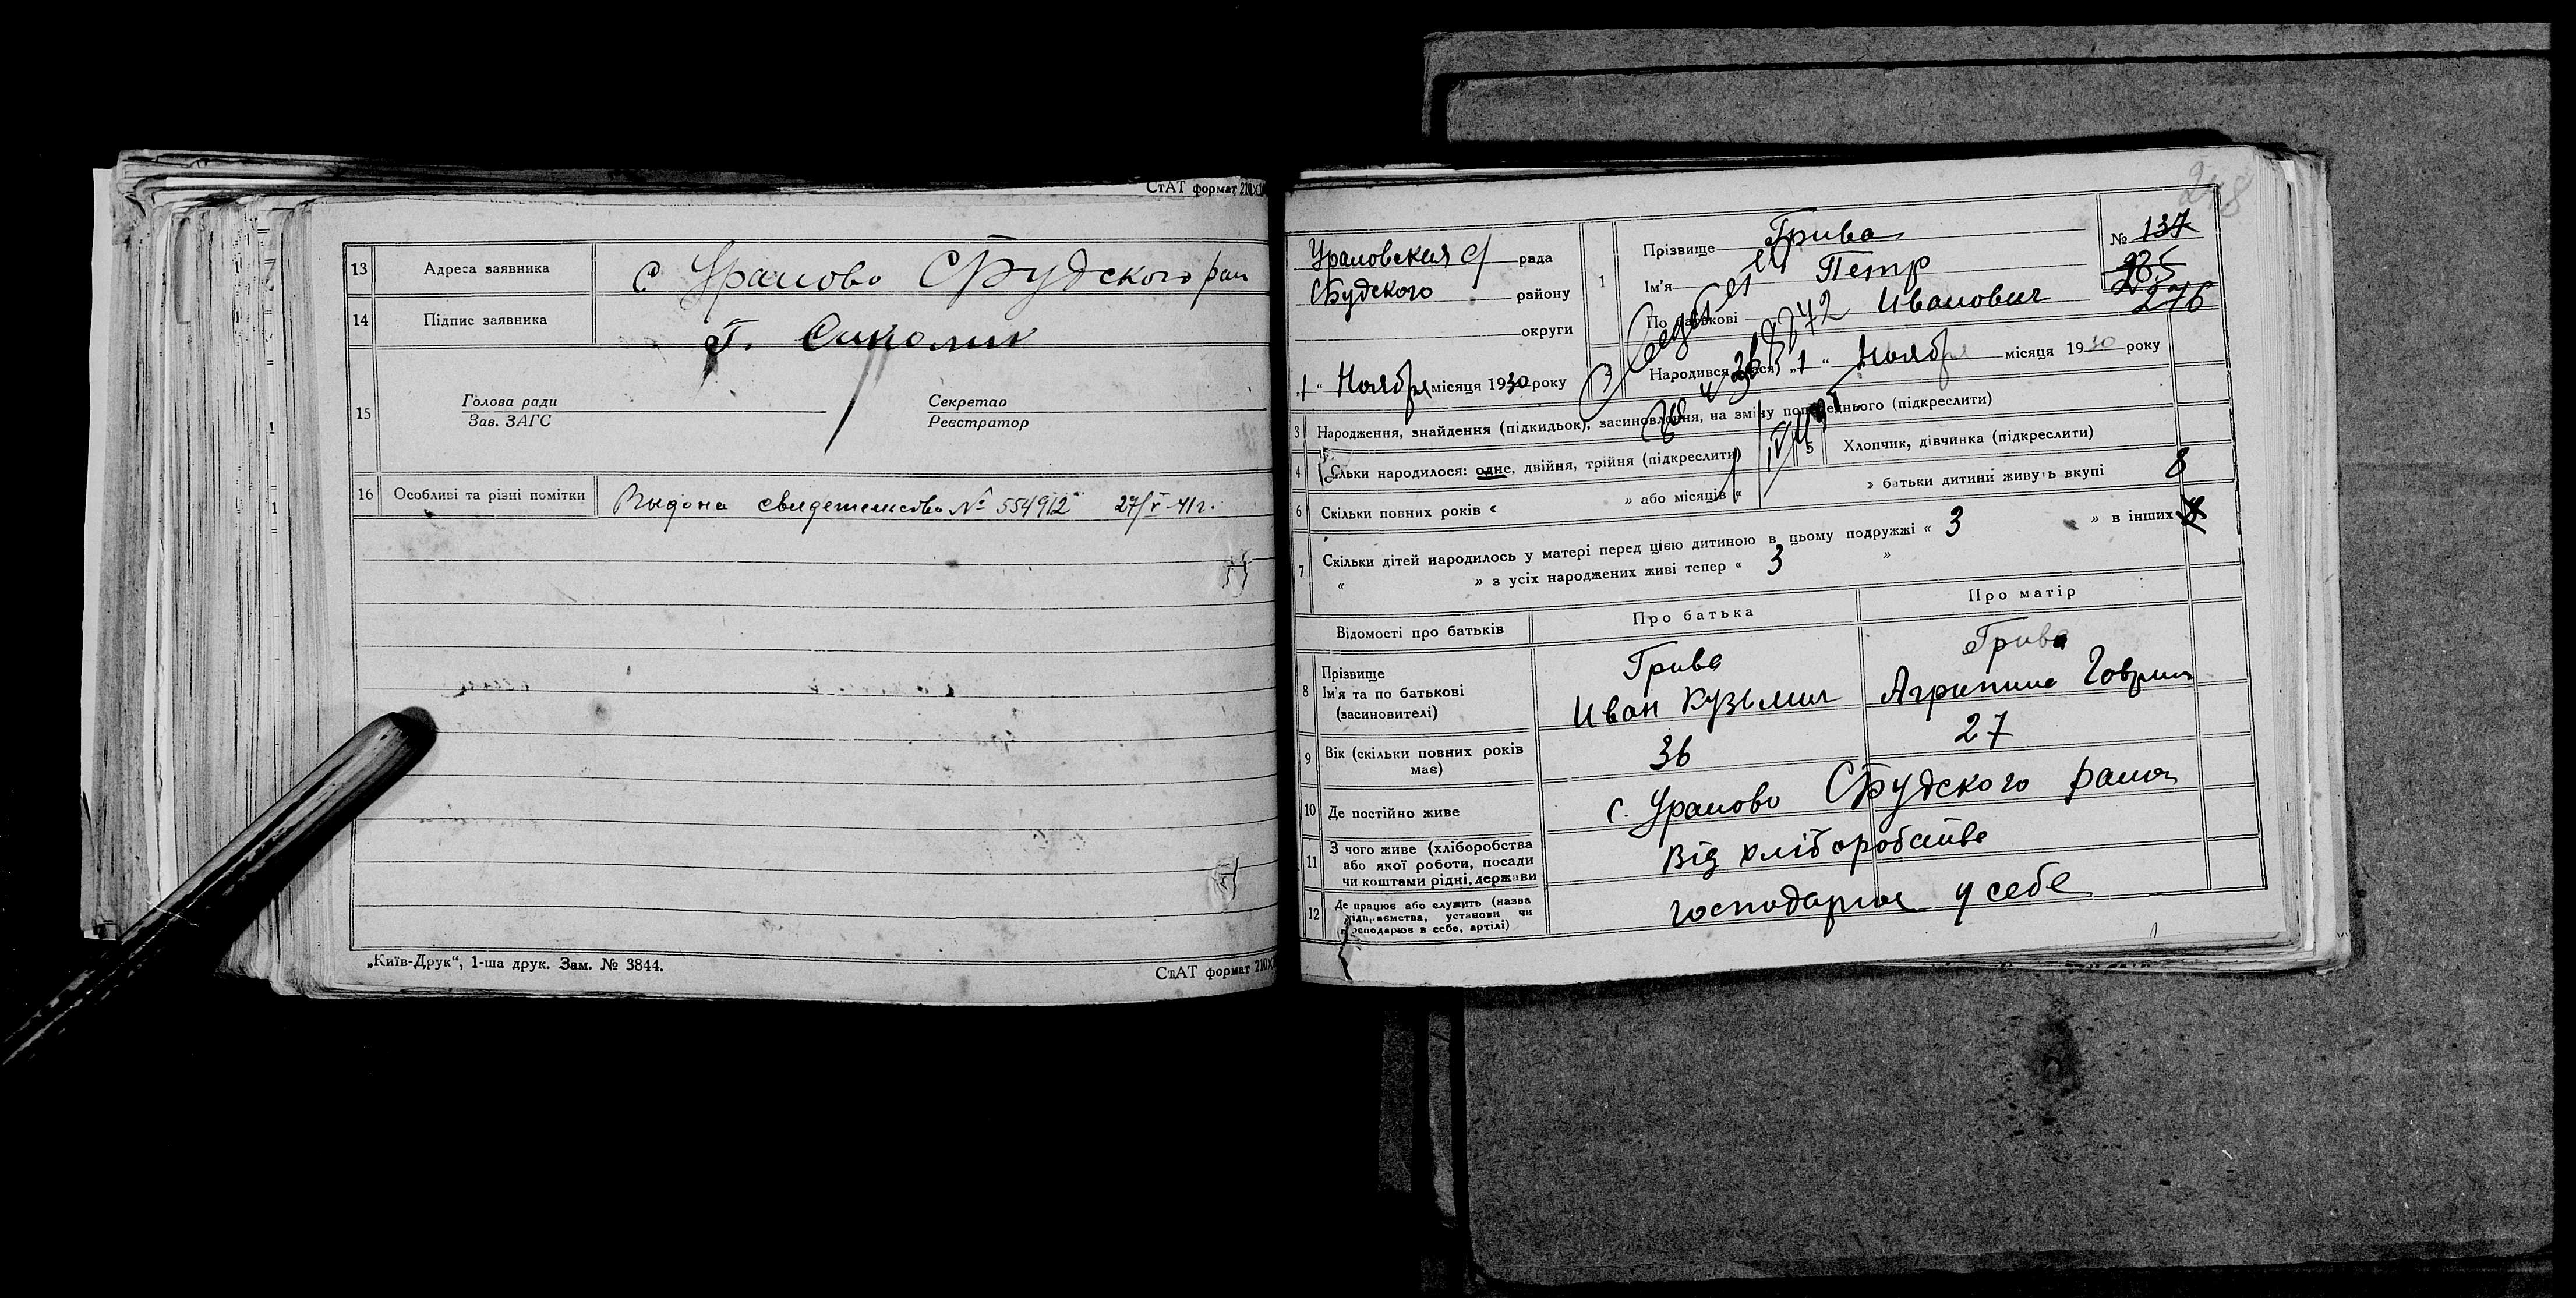 СтАТ формат 210×1
13 Адреса заявника с Ураново СБудского рай
14 Підпис заявника
15 Голова ради Секретар
Зав. ЗАГС Реєстратор
16 Особливі та різні помітки Выдона свидетельство № 554912 27/V-41г.
„Київ-Друк“, 1-ша друк. Зам. № 3844.
СтАТ формат 210×
248
Урановская с/ рада
СБудского району
округи
1 “ Ноября місяця 1930 року
1 Прізвище Грива
Ім'я Петр
По батькові Иванович
№ 137
276
2 Народився (лася) „1“ Ноября місяця 1930 року
3 Народження, знайдення (підкидьок), засиновлення, на зміну попереднього (підкреслити)
4 Скільки народилося: одне, двійня, трійня (підкреслити)
5 Хлопчик, дівчинка (підкреслити)
6 Скільки повних років « » або місяців « » батьки дитини живуть вкупі 8
7 Скільки дітей народилось у матері перед цією дитиною в цьому подружжі « 3 » в інших
« » з усіх народжених живі тепер « 3 »
Відомості про батьків Про батька Про матір
8 Прізвище Грива Грива
Ім'я та по батькові Иван Кузьмич Агрипина Говрил
(засиновителі)
9 Вік (скільки повних років 36 27
має)
10 Де постійно живе с. Ураново СБудского район
11 З чого живе (хліборобства Від хліборобства
або якої роботи, посади
чи коштами рідні, держави
12 Де працює або служить (назва господарює у себе
підприємства, установи чи
господарює в себе, артілі)